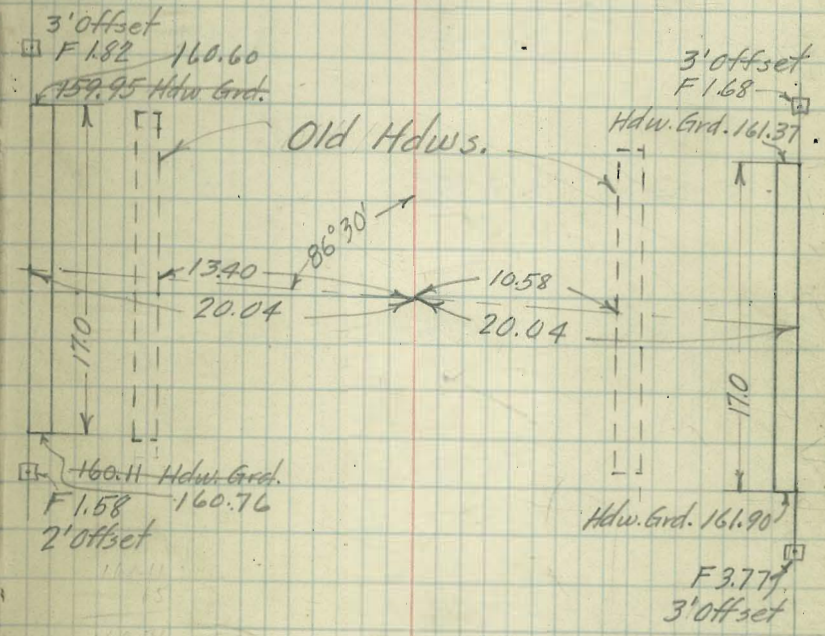 3' Offset
F 1.82 160.60
159.95 Hdw Grd.
3' Offset
F 1.68
Hdw. Grd. 161.37
Old Hdws.
86°30'
13.40
10.58
20.04
20.04
17.0
17.0
160.11 Hdw. Grd.
F 1.58 160.76
2' Offset
Hdw. Grd. 161.90
F 3.77
3' Offset